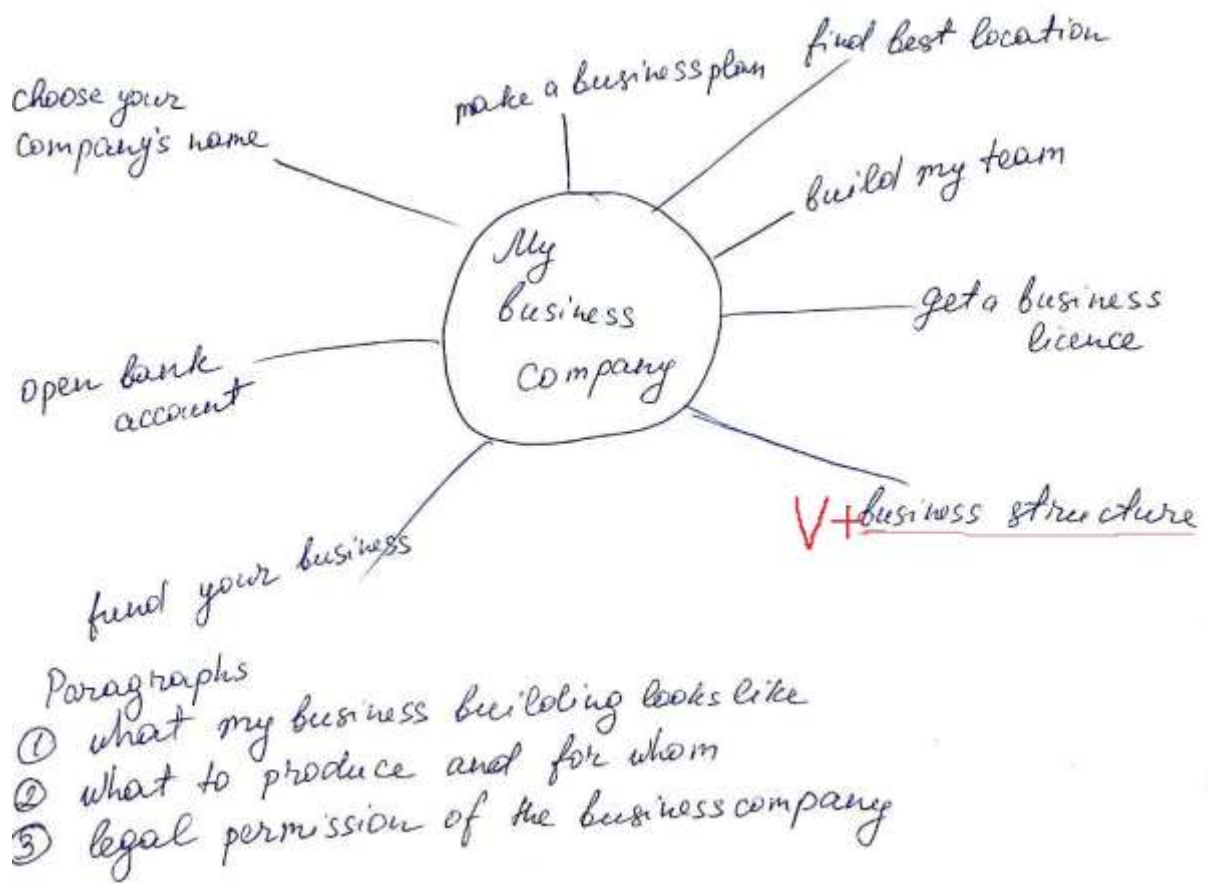 find best location
make a business plan
choose your
company's name
build my team
My
business
company
get a business
licence
open bank
account
V+business structure
fund your business
Paragraphs
① what my business building looks like
② what to produce and for whom
③ legal permission of the business company